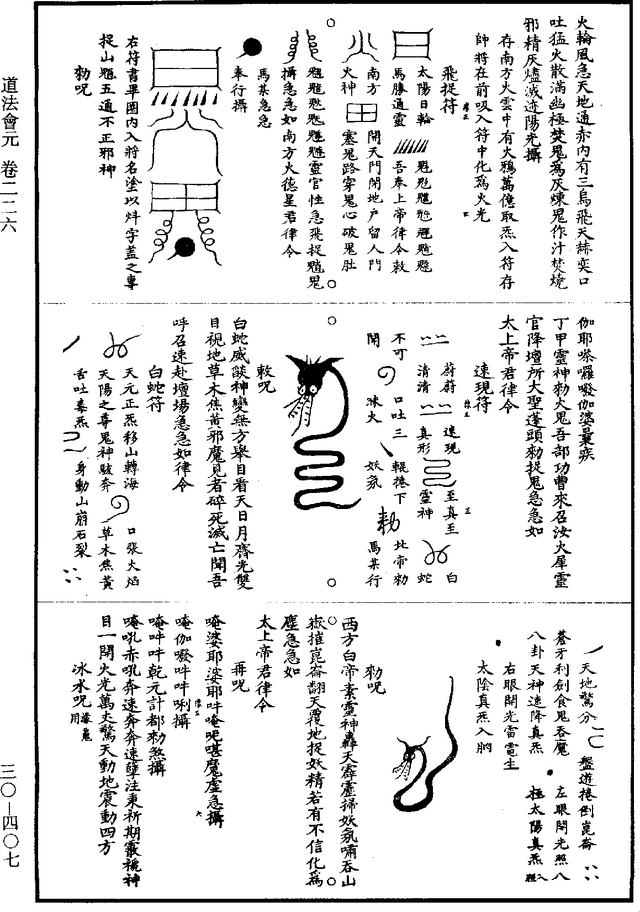 道法會元 卷二二六
三〇—四〇七
火輪風急天地通赤內有三烏飛天赫奕口
吐猛火散滿幽極焚鬼為灰煉鬼作汁焚燒
邪精灰燼滅迹陽光攝
存南方火雲中有火鴉萬億取炁入符存
師將在前吸入符中化為火光
飛捉符
太陽日輪
馬勝通靈
吾奉上帝律令敕
南方
火神
開天門閉地户留人門
塞鬼路穿鬼心破鬼肚
靈官性急飛捉
攝急急如南方火德星君律令
馬某急急
奉行攝
右符書畢圈內入將名塗以炓字蓋之專
捉山魈五通不正邪神
勑呪
伽耶嗏囉㘑伽婆曩疾
丁甲靈神勑火鬼吾部功曹來召汝火犀靈
官降壇所大聖蓬頭勑捉鬼急急如
太上帝君律令
速現符
蔚蔚
速現
至真至
白
清清
真形
靈神
蛇
不可
口吐三
輥捲下
北帝勑
聞
昧火
妖氛
馬某行
敕呪
白蛇威燄神變無方舉目看天日月齊光雙
目視地草木焦黃邪魔見者碎死滅亡聞吾
呼召速赴壇場急急如律令
白蛇符
天元正炁移山轉海
口張火焰
天陽之尊鬼神駭奔
草木焦黃
舌吐毒炁
身動山崩石裂
天地驚分
盤遊捲倒崑崙
蒼牙利劍食鬼吞魔
左眼開光照八
八卦天神速降真炁
極太陽真炁入
右眼開光雷電生
太陰真炁入胸
勑呪
西方白帝素靈神轟天霹靂掃妖氛嘯吞山
嶽摧崑崙翻天覆地捉妖精若有不信化為
塵急急如
太上帝君律令
再呪
唵婆耶婆耶吽唵呢喏魔虛急攝
唵伽㘑吽吽唎攝
唵吽吽乾元計都勑煞攝
唵吼赤吼奔速奔奔速孽注東祈期靈機神
目一開火光萬丈驚天動地震動四方
冰水呪